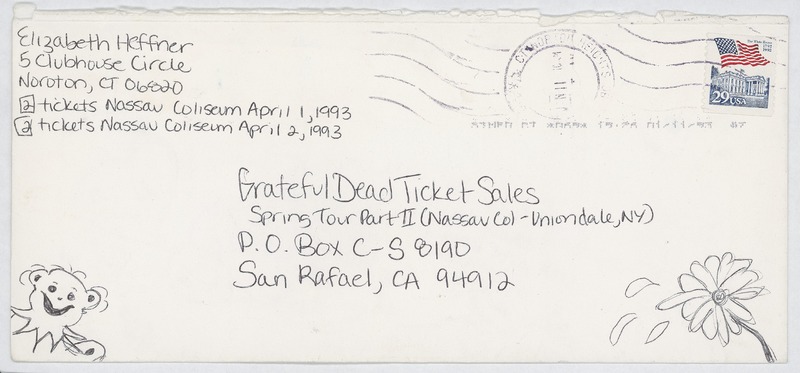 Elizabeth Heffner
5 Clubhouse Circle
Noroton, CT 06820
2 tickets Nassau Coliseum April 1, 1993
2 tickets Nassau Coliseum April 2, 1993
29 USA
Grateful Dead Ticket Sales
Spring Tour Part II (Nassau Col - Uniondale, NY)
P.O. Box C-S 8190
San Rafael, CA 94912